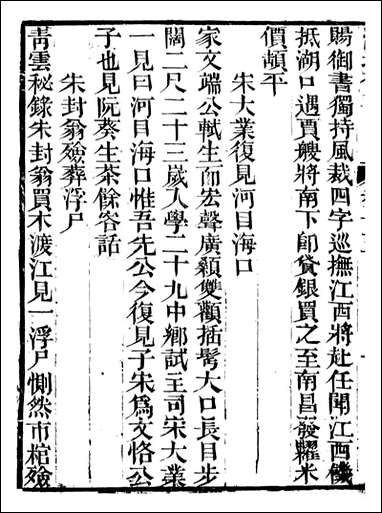 賜御書獨持風裁四字巡撫江西將赴任聞江西饑
抵湖口遇賈艘將南下卽貸銀買之至南昌發糶米
價頓平
朱大業復見河目海口
家文端公軾生而宏聲廣顙雙顴插鬢大口長目步
闊二尺二十三歲入學二十九中鄉試主司宋大業
一見曰河目海口惟吾先公今復見子宋爲文恪公
子也見阮葵生茶餘客話
朱封翁殮葬浮尸
靑雲秘錄朱封翁買木渡江見一浮尸惻然市棺殮